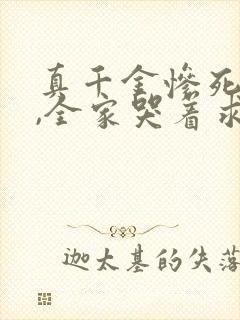 真千金惨死
,全家哭着求
迦太基的失落